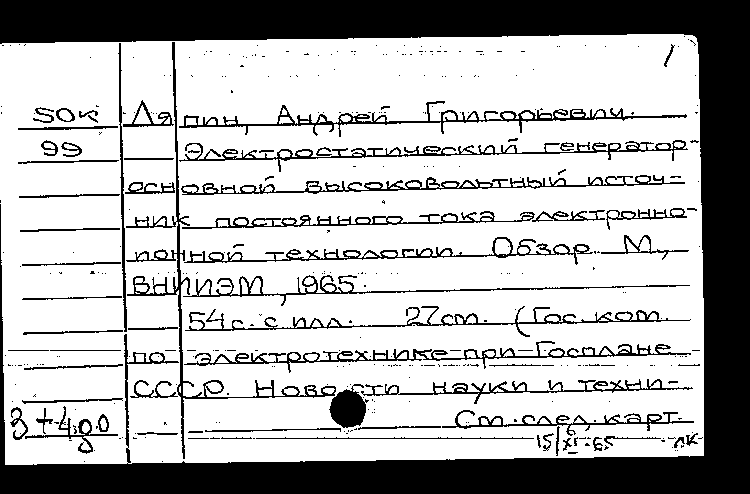 1
50к Ляпин, Андрей Григорьевич.
99 Электростатический генератор-
основной высоковольтный источ-
ник постоянного тока электронно-
ионной технологии. Обзор М.,
ВНИИЭМ, 1965.
54 с. с илл. 27см. (Гос. ком.
по электротехнике при Госплане
СССР. Новости науки и техни-
3+4до См. след. карт.
15/XI-65 лк